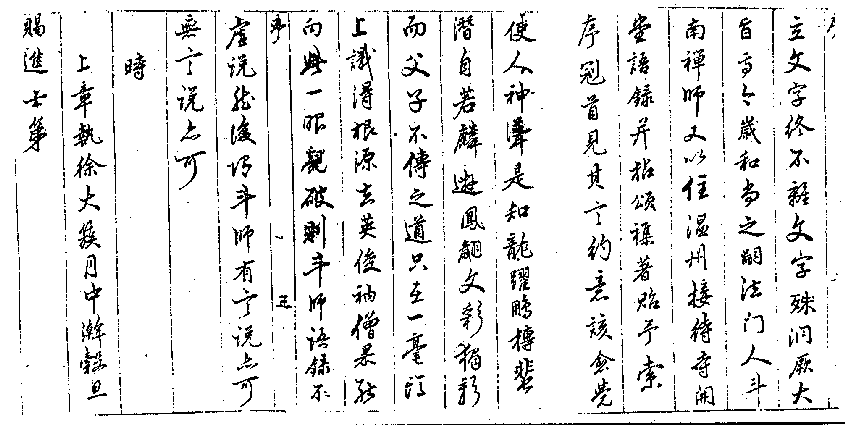 序
立文字終不離文字殊洞厥大
旨耳今歲和尚之嗣法門人斗
南禪師又以住溫州接待寺開
堂語錄并拈頌襍著貽予索
序冠首見其言約意該愈覺
使人神聳是知龍躍鵬摶
潛自若麟遊鳳翽文彩猶彰
而父子不傳之道只在一毫頭
上識得根源去英俊衲僧果能
向此一眼覷破則斗師語錄不
序 五
虛說然後乃斗師有言說亦可
無言說亦可
時
上章執徐大蔟月中澣穀旦
賜進士第